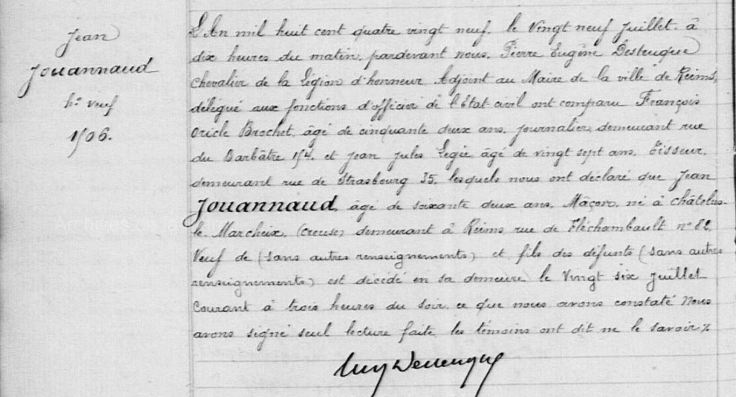 Jean
Jouannaud
h^e veuf
1506.
L'An mil huit cent quatre vingt neuf, le Vingt neuf Juillet, à
dix heures du matin, pardevant nous, Pierre Eugène Desteuque
Chevalier de la Légion d'honneur Adjoint au Maire de la ville de Reims,
délégué aux fonctions d'officier de l'Etat civil ont comparu François
Brochet, âgé de cinquante deux ans, journalier, demeurant rue
du Barbâtre 154, et Jean Jules Legée âgé de vingt sept ans, Tisseur,
demeurant rue de Strasbourg 35, lesquels nous ont déclaré que Jean
Jouannaud, âgé de soixante deux ans, Maçon, né à Châtelus-
le Marcheix, (Creuse) demeurant à Reims rue de Fléchambault n° 82,
Veuf de (sans autres renseignements) et fils des défunts (sans autres
renseignements) est décédé en sa demeure le Vingt six Juillet
Courant à trois heures du soir, ce que nous avons constaté Nous
avons signé seul lecture faite les témoins ont dit ne le savoir